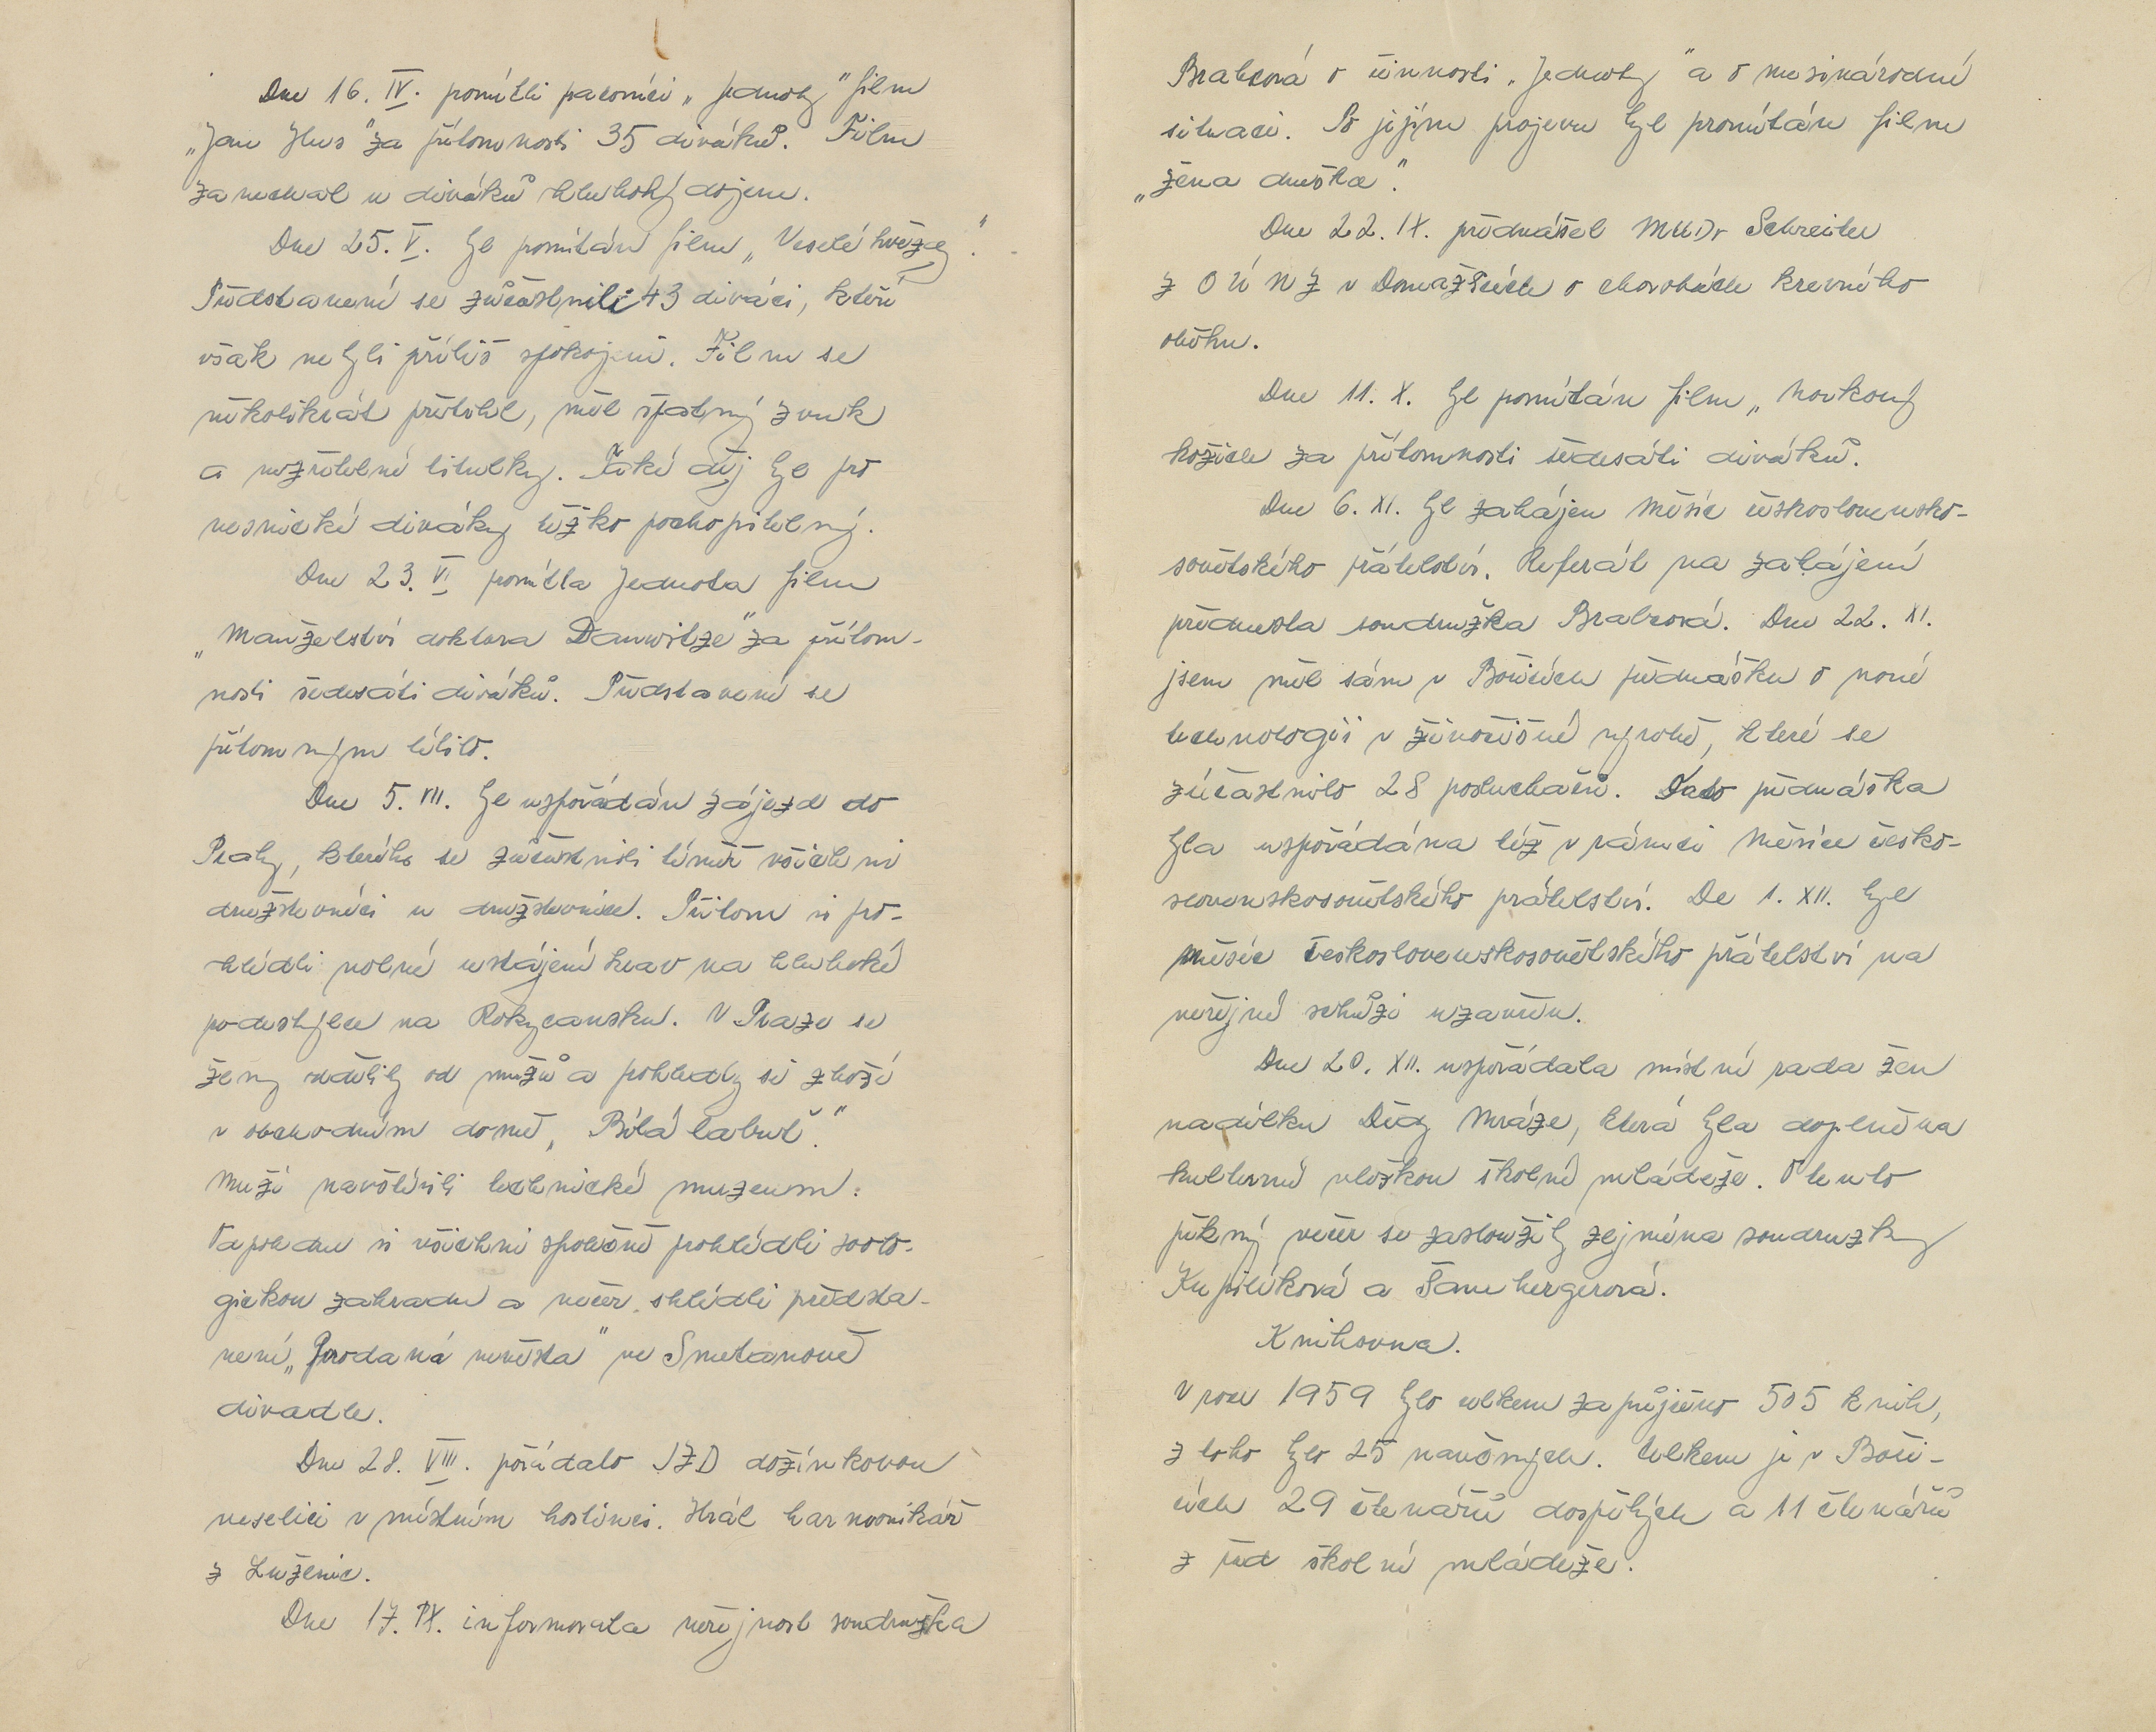 Dne 16. IV. promítli pracovníci „Jednoty" film
„Jan Hus" za přítomnosti 35 diváků. Film
zanechal u diváků hluboký dojem.
Dne 25. V. byl promítán film „Veselé hvězdy".
Představení se zůčastnili 43 diváci, kteří
však nebyli příliš spokojeni. Film se
několikrát přetrhl, měl špatný zvuk
a nezřetelné titulky. Také děj byl pro
vesnické diváky těžko pochopitelný.
Dne 23. VI promítla Jednota film
„Manželství doktora Danwitze" za přítom-
nosti šedesáti diváků. Představení se
přítomným líbilo.
Dne 5. VII. byl uspořádán zájezd do
Prahy, kterého se zůčastnili téměř všichni
družstevníci a družstevnice. Přitom si pro-
hlédli volné ustájení krav na hluboké
podestýlce na Rokycansku. V Praze se
ženy oddělily od mužů a pohledly si zboží
v obchodním domě „Bílá labuť".
Muži navštívili technické muzeum.
Odpoledne si všichni společně prohlédli zoolo-
gickou zahradu a večer shlédli předsta-
vení „Prodaná nevěsta" ve Smetanově
divadle.
Dne 28. VIII. pořádalo JZD dožínkovou
veselici v místním hostinci. Hrál harmonikář
z Luženic.
Dne 17. IX. informovala veřejnost soudružka
Brabcová o činnosti „Jednoty" a o mezinárodní
situaci. Po jejím projevu byl promítán film
„Žena dneška".
Dne 22. IX. přednášel MUDr Schreiber
z OÚNZ v Domažlicích o chorobách krevního
oběhu.
Dne 11. X. byl promítán film „Norkový
kožich za přítomnosti šedesáti diváků.
Dne 6. XI. byl zahájen Měsíc československo-
sovětského přátelství. Referát na zahájení
přednesla soudružka Brabcová. Dne 22. XI.
jsem měl sám v Bořicích přednášku o nové
technologii v živočišné výrobě, které se
zúčastnilo 28 posluchačů. Tato přednáška
byla uspořádána též v rámci Měsíce česko-
slovenskosovětského přátelství. De 1. XII. byl
měsíc československosovětského přátelství na
veřejné schůzi uzavřen.
Dne 20. XII. uspořádala místní rada žen
nadílku Dědy Mráze, která byla doplněna
kulturní vložkou školní mládeže. O tento
pěkný večer se zasloužily zejména soudruzky
Kupilíková a Šambergerová.
Knihovna.
V roce 1959 bylo celkem zapůjčeno 505 knih,
z toho bylo 25 naučných. Celkem je v Boři-
cích 29 čtenářů dospělých a 11 čtenářů
z řad školní mládeže.